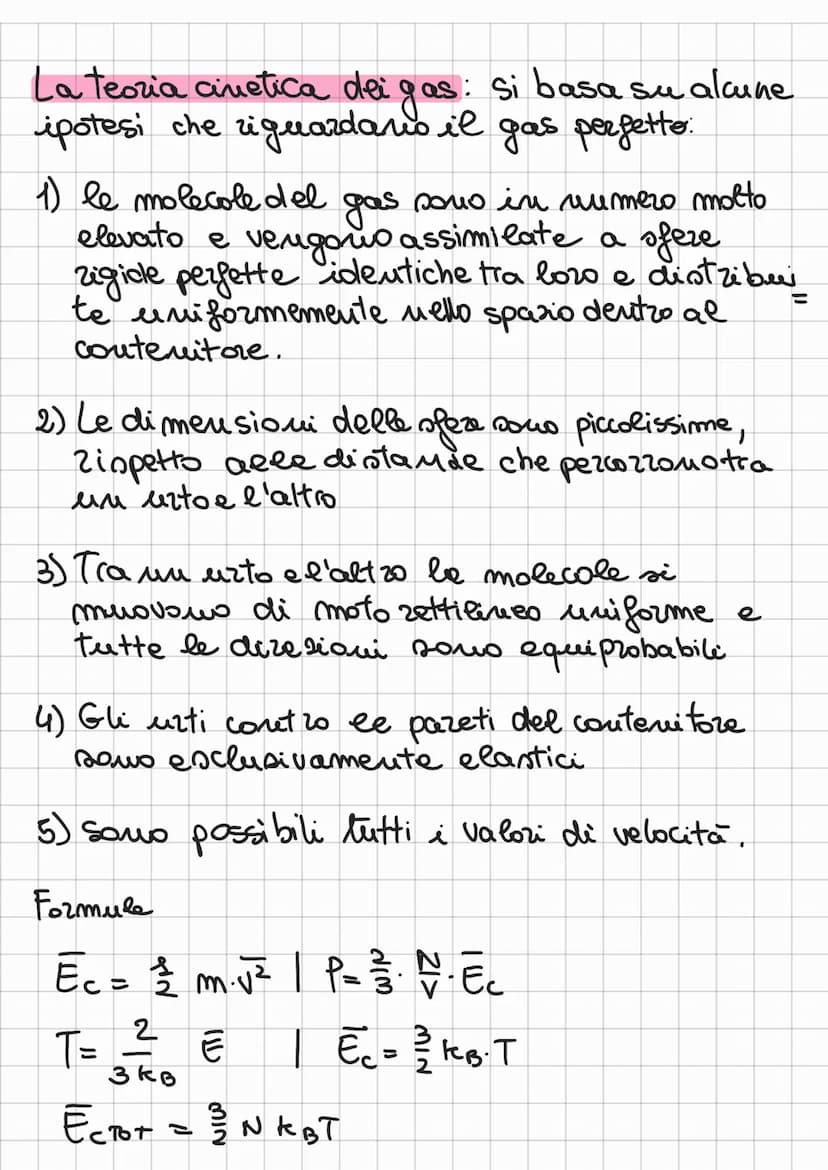 La teoria cinetica dei gas: si basa su alcune
ipotesi che riguardano il gas perfetto:
1) le molecole del gas sono in numero molto
elevato e vengono assimilate a sfere
rigide perfette identiche tra loro e distribui
te uniformemente nello spazio dentro al =
contenitore.
2) Le dimensioni delle sfere sono piccolissime,
rispetto alle distanze che percorrono tra
un urto e l'altro
3) Tra un urto e l'altro le molecole si
muovono di moto rettilineo uniforme e
tutte le direzioni sono equiprobabili
4) Gli urti contro le pareti del contenitore
sono esclusivamente elastici
5) sono possibili tutti i valori di velocità.
Formule
Ē_c = 1/2 m·v̄² | P = 2/3 · N/V · Ē_c
T = 2/(3 k_B) Ē | Ē_c = 3/2 k_B·T
Ē_c TOT = 3/2 N k_B T